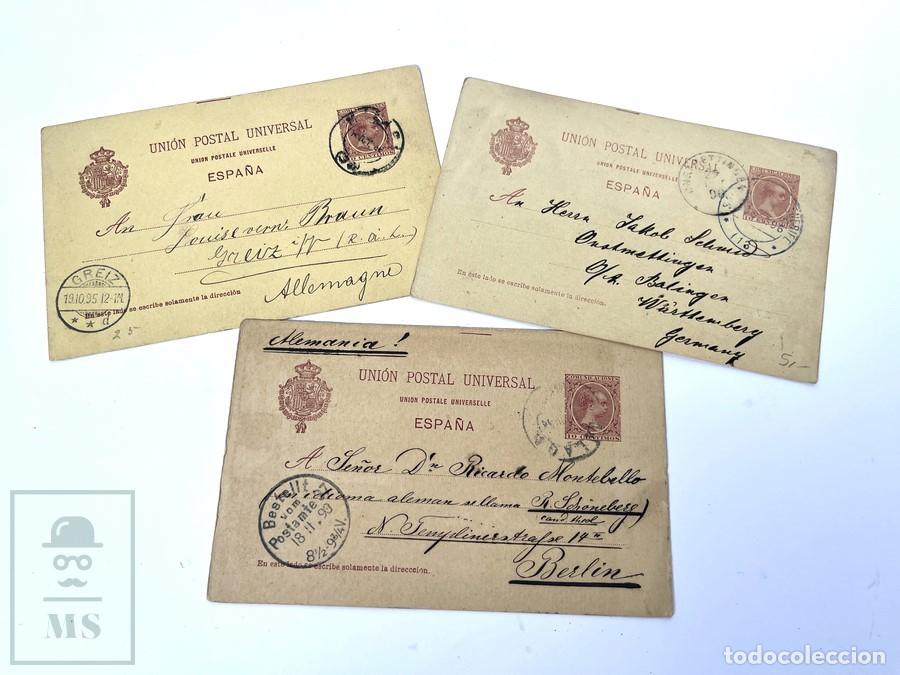 UNIÓN POSTAL UNIVERSAL
UNION POSTALE UNIVERSELLE
ESPAÑA
An Frau
Louise verw. Braun
Greiz i/V (R. ä. L.)
Allemagne
GREIZ
19.10.95.12-1N.
* * d
En este lado se escribe solamente la dirección
25
UNIÓN POSTAL UNIVERSAL
UNION POSTALE UNIVERSELLE
ESPAÑA
An Herrn Jakob Schmid
Onstmettingen
O/A. Balingen
Württemberg
Germany
En este lado se escribe solamente la dirección.
(15)
5,-
Alemania!
UNIÓN POSTAL UNIVERSAL
UNION POSTALE UNIVERSELLE
ESPAÑA
COMUNICACIONES
10 CENTIMOS
MALAGA
A Señor Dn Ricardo Montebello
(idioma aleman se llama R. Schöneberg)
cand. theol
N. Templinerstraße 14
Berlin
Bestellt
vom
Postamte
18 11. 90
8½-9¾V.
En este lado se escribe solamente la direcccion.
MS
todocoleccion